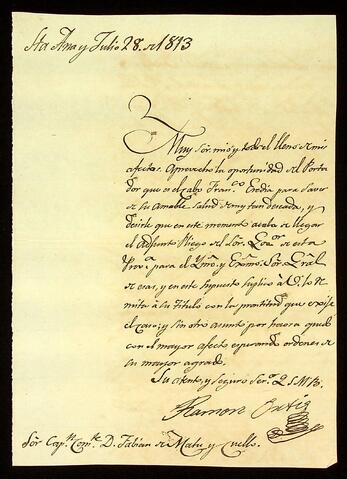 Sta Ana y Julio 28. de 1813
Muy Sor. mio y todo el lleno de mis
afectos. Aprovecho la oportunidad del Porta
dor que es el Cabo Franco. Endia para saver
de su Amable salud de mi tan deseada, y
decirle que en este momento acaba de llegar
el adjunto Pliego del Sor. Govor. de esta
Prova. para el Ymo. y Exmo. Sor. Gral
de esas, y en este supuesto suplico à V. lo re
mita à su Titulo con la prontitud que exije
el caso; y sin otro asunto por haora quedo
con el mayor afecto esperando ordenes de
su mayor agrado.
Su atento, y Seguro Seror. Q. S. M. B.
Ramon Ortiz
Sor. Capn. Comte. D. Fabian de Mata y Cuello.